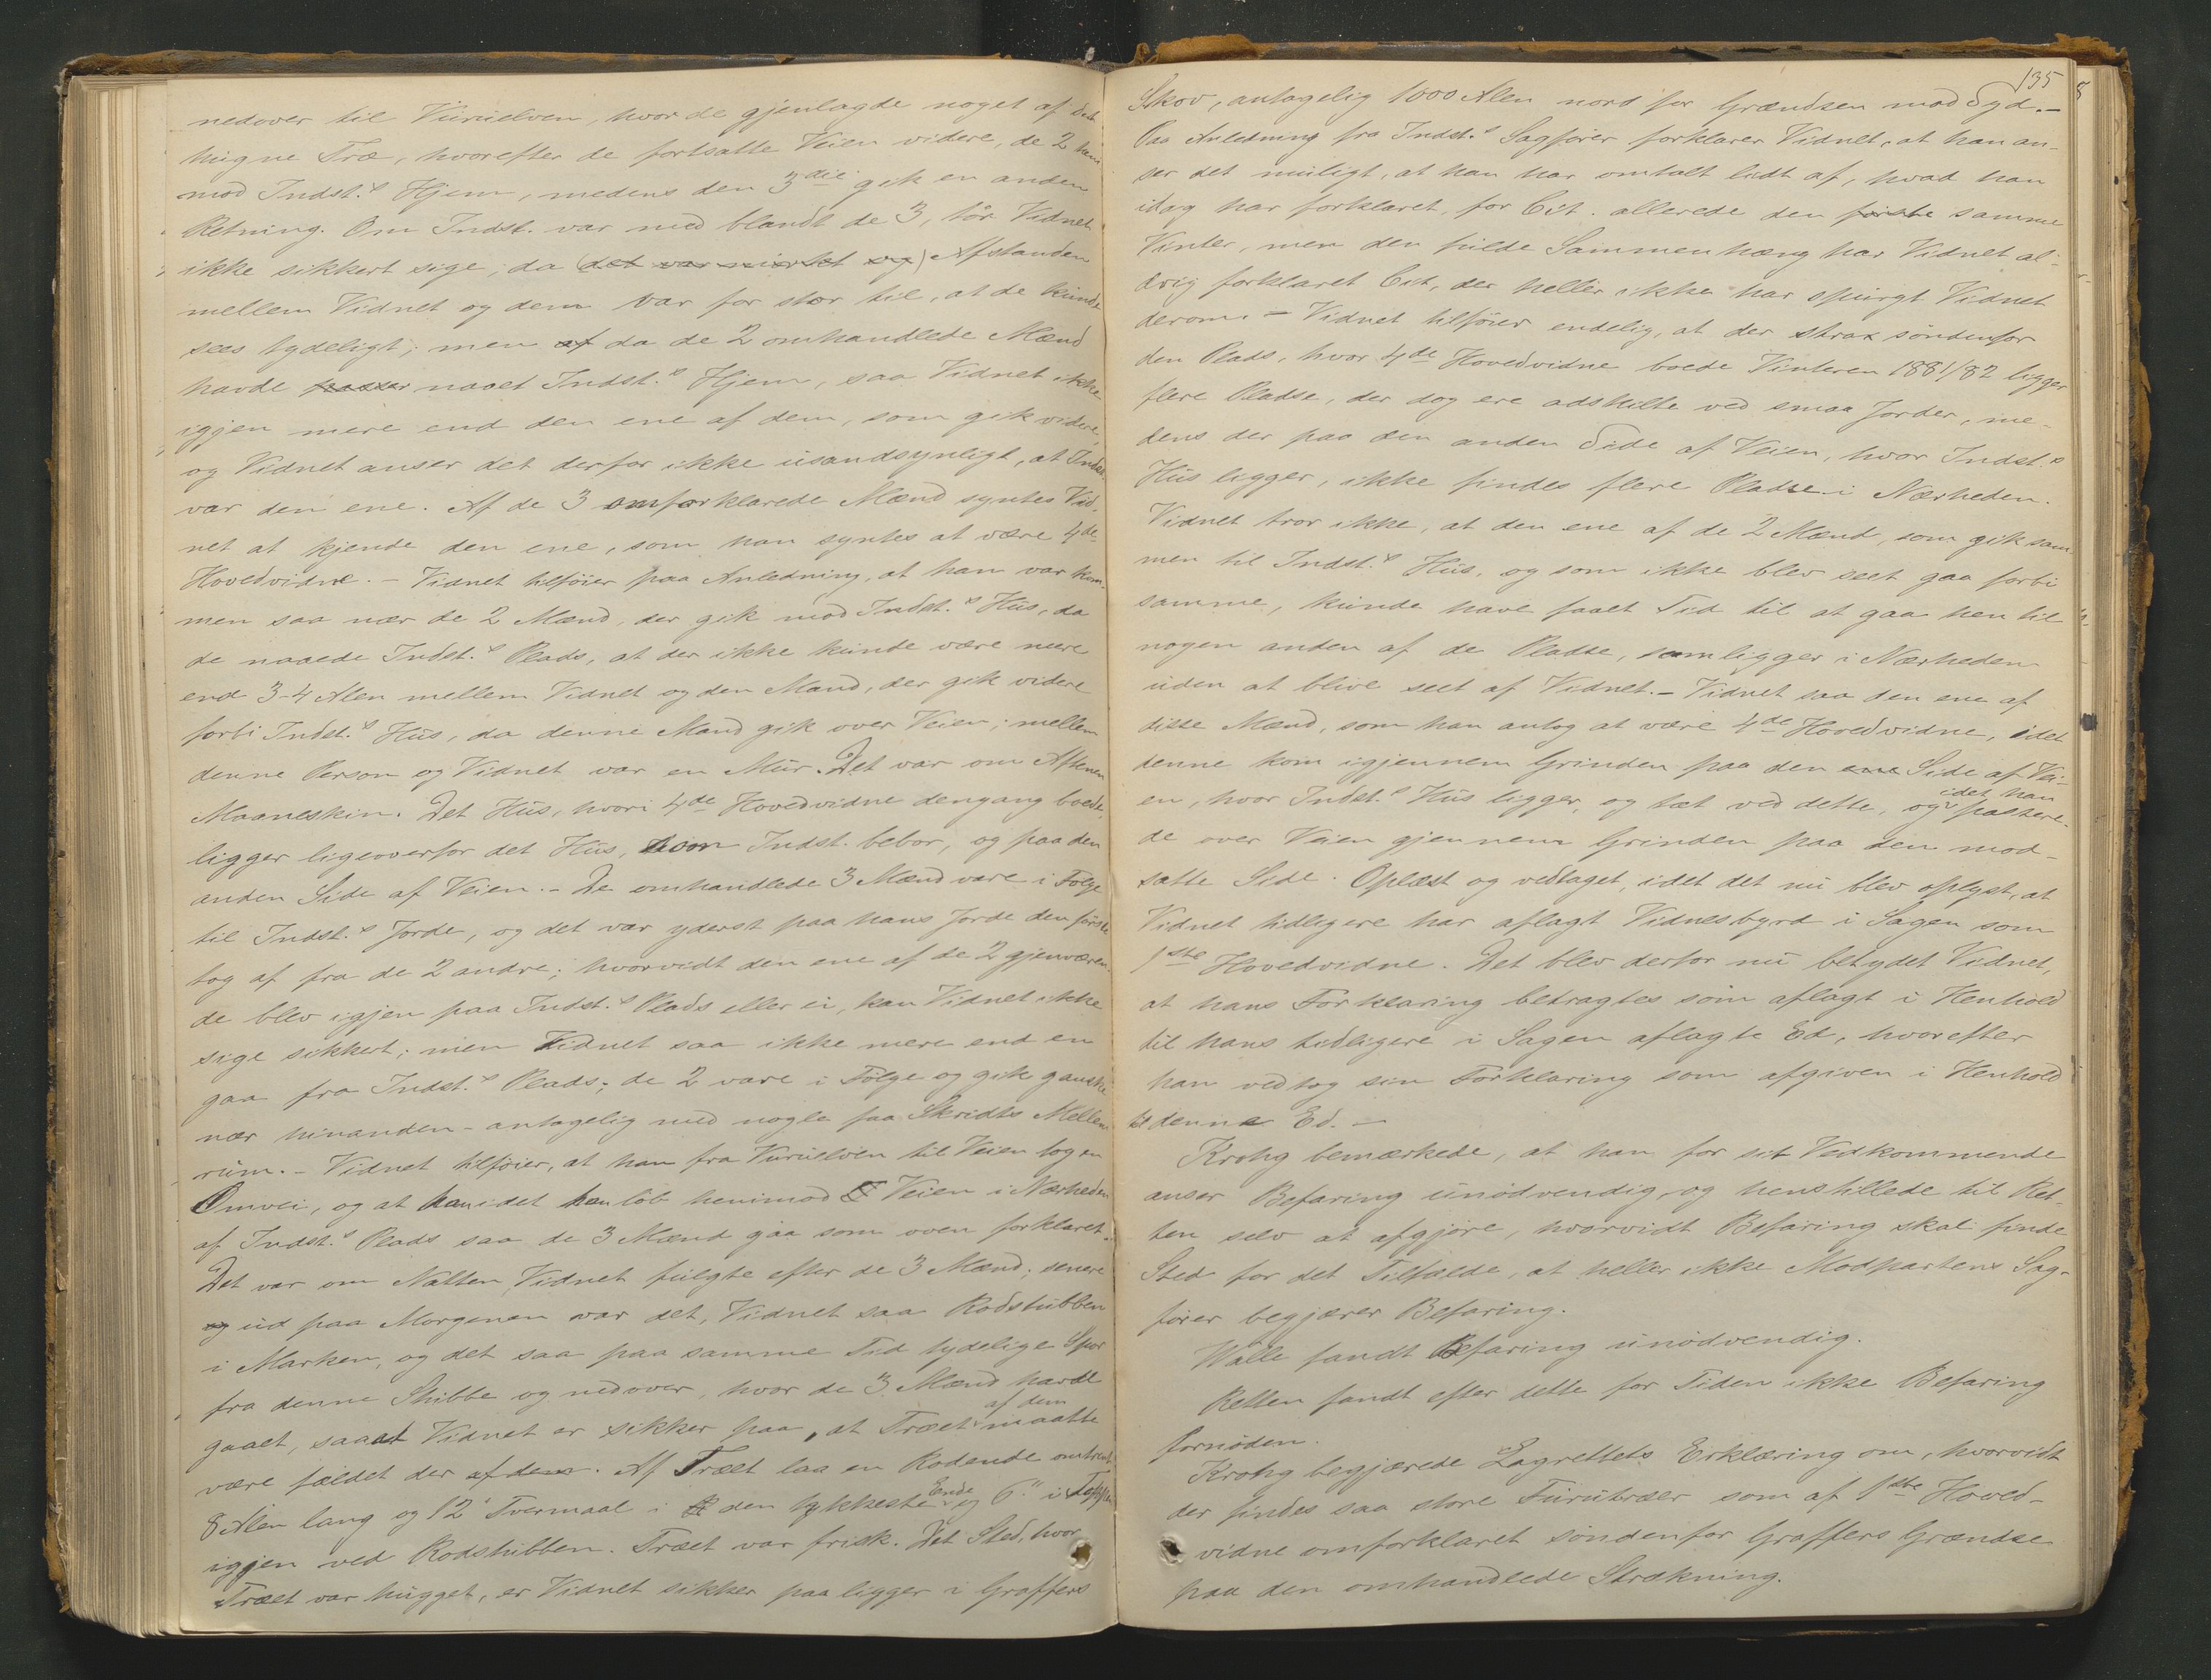 nedover til Vuruelven, hvor de gjenlagde noget af det
hugne Træ, hvorefter de fortsatte Veien videre, de 2 hen
mod Indst.s Hjem, medens den 3die gik en anden
Retning. Om Indst. var med blandt de 3, tör Vidnet
ikke sikkert sige, da (det var mörkt og) Afstanden
mellem Vidnet og dem var for stor til, at de kunde
sees tydeligt; men af da de 2 omhandlede Mænd
havde naaet Indst.s Hjem, saa Vidnet ikke
igjen mere end den ene af dem, som gik videre,
og Vidnet anser det derfor ikke usandsynligt, at Indst.
var den ene. Af de 3 omforklarede Mænd syntes Vid-
net at kjende den ene, som han syntes at være 4de
Hovedvidne. – Vidnet tilföier paa Anledning, at han var kom-
men saa nær de 2 Mænd, der gik mod Indst.s Hus, da
de naaede Indst.s Plads, at der ikke kunde være mere
end 3-4 Alen mellem Vidnet og den Mand, der gik videre
forbi Indst.s Hus, da denne Mand gik over Veien; mellem
denne Person og Vidnet var en Mur. Det var om Aftenen
Maaneskin. Det Hus, hvori 4de Hovedvidne dengang boede,
ligger ligeoverfor det Hus, som Indst. bebor, og paa den
anden Side af Veien. – De omhandlede 3 Mænd vare i Følge
til Indst.s Jorde, og det var yderst paa hans Jorde den förste
tog af fra de 2 andre; hvorvidt den ene af de 2 gjenværen-
de blev igjen paa Indst.s Plads eller ei, kan Vidnet ikke
sige sikkert; men Vidnet saa ikke mere end en
gaa fra Indst.s Plads; de 2 vare i Følge og gik ganske
nær hinanden – antagelig med nogle faa Skridts Mellem-
rum. – Vidnet tilföier, at han fra Vuruelven til Veien tog en
Omvei, og at han idet han löb henimod Veien i Nærheden
af Indst.s Plads saa de 3 Mænd gaa som oven forklaret.
Det var om Natten, Vidnet fulgte efter de 3 Mænd; senere
og ud paa Morgenen var det, Vidnet saa Rodstubben
i Marken, og det saa paa samme Tid tydelige Spor
fra denne Stubbe og nedover, hvor de 3 Mænd havde
gaaet, saaat Vidnet er sikker paa, at Træet af dem maatte
være fældet der af dem. Af Træet laa en Rodende omtrent
8 Alen lang og 12" Tvermaal i den tykkeste Ende og 6" i Toppen
igjen ved Rodstubben. Træet var frisk. Det Sted, hvor
Træet var hugget, er Vidnet sikker paa ligger i Graffers
135
Skov, antagelig 1000 Alen nord for Grændsen mod Syd. –
Paa Anledning fra Indst.s Sagförer forklarer Vidnet, at han an-
ser det muligt, at han har omtalt lidt af, hvad han
idag har forklaret, for Cit. allerede den förste samme
Vinter, men den fulde Sammenhæng har Vidnet al-
drig forklaret Cit., der heller ikke har spurgt Vidnet
derom. – Vidnet tilföier endelig, at der strax söndenfor
den Plads, hvor 4de Hovedvidne boede Vinteren 1881/82 ligger
flere Pladse, der dog ere adskilte ved smaa Jorder, me-
dens der paa den anden Side af Veien, hvor Indst.s
Hus ligger, ikke findes flere Pladse i Nærheden.
Vidnet tror ikke, at den ene af de 2 Mænd, som gik sam-
men til Indst.s Hus, og som ikke blev seet gaa forbi
samme, kunde have faaet Tid til at gaa hen til
nogen anden af de Pladse, som ligger i Nærheden
uden at blive seet af Vidnet. – Vidnet saa den ene af
disse Mænd, som han antog at være 4de Hovedvidne, idet
denne kom igjennem Grinden paa den ene Side af Vei-
en, hvor Indst.s Hus ligger, og tæt ved dette, og idet han passere-
de over Veien gjennem Grinden paa den mod-
satte Side. Oplæst og vedtaget, idet det nu blev oplyst, at
Vidnet tidligere har aflagt Vidnesbyrd i Sagen som
1ste Hovedvidne. Det blev derfor nu betydet Vidnet,
at hans Forklaring betragtes som aflagt i Henhold
til hans tidligere i Sagen aflagte Ed, hvorefter
han vedtog sin Forklaring som afgiven i Henhold
til denne Ed. –
Krohg bemærkede, at han for sit Vedkommende
anser Befaring unödvendig, og henstillede til Ret-
ten selv at afgjöre, hvorvidt Befaring skal finde
Sted for det Tilfælde, at heller ikke Modpartens Sag-
förer begjærer Befaring.
Walle fandt Befaring unödvendig.
Retten fandt efter dette for Tiden ikke Befaring
fornöden.
Krohg begjærede Lagrettets Erklæring om, hvorvidt
der findes saa store Furutræer som af 1ste Hoved-
vidne omforklaret söndenfor Graffers Grændse
paa den omhandlede Strækning.